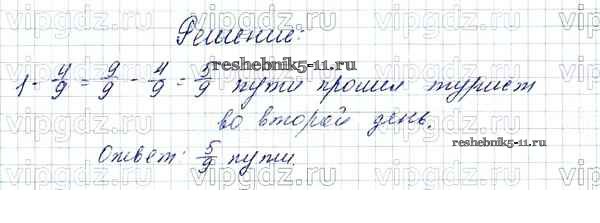 vipgdz.com vipgdz.com vipgdz.com
Решение:
reshebnik5-11.ru
1 - 4/9 = 9/9 - 4/9 = 5/9 пути прошел турист
во второй день.
reshebnik5-11.ru
Ответ: 5/9 пути.
vipgdz.com vipgdz.com vipgdz.com